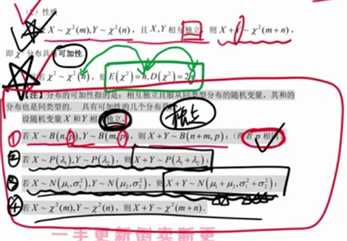 性
X ~ χ²(m), Y ~ χ²(n), 且 X,Y 相互独立, 则 X+Y ~ χ²(m+n).
即 χ² 分布具有可加性
若 χ² ~ χ²(n), 则 E(χ²)=n, D(χ²)=2n
分布的可加性指的是:相互独立且服从同类型分布的随机变量,其和的
分布也是同类型的. 具有可加性的几个分布
设随机变量 X 和 Y 相 独立
① 若 X~B(n,p), Y~B(m,p), 则 X+Y~B(n+m,p); p 相
② 若 X~P(λ₁), Y~P(λ₂), 则 X+Y~P(λ₁+λ₂);
③ 若 X~N(μ₁,σ₁²), Y~N(μ₂,σ₂²), 则 X+Y~N(μ₁+μ₂,σ₁²+σ₂²)
④ 若 X~χ²(m), Y~χ²(n), 则 X+Y~χ²(m+n).
一手更新倒卖断更